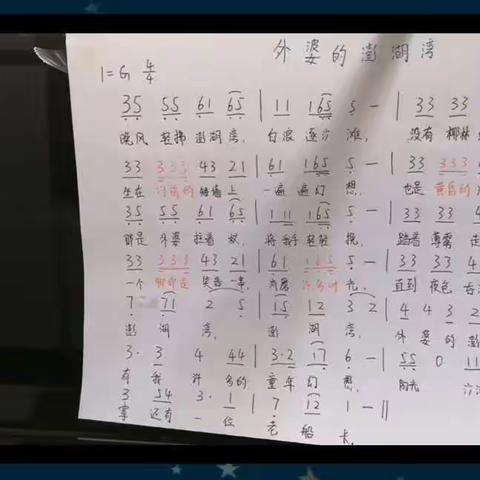 外婆的澎湖湾
1=G 4/4
35 55 61 65 | 11 165 5 - | 33 33
晚风 轻拂 澎湖 湾, 白浪 逐沙 滩, 没有 椰林
33 333 43 21 | 61 165 5 - | 33 333
坐在 门前的 矮墙 上 一遍 遍幻 想, 也是 黄昏的
35 55 61 65 | 111 165 5 - | 33 33 4
那是 外婆 拄着 杖, 将我手 轻轻 挽, 踏着 薄雾 走
33 333 43 21 | 61 165 5 - | 33 33
一个 脚印是 笑语 一串, 消磨 许多时 光, 直到 夜色
7 71 2 5 | 15 12 3 2 | 4 4 3 2
澎 湖 湾, 澎 湖 湾, 外 婆 的 澎
3· 3 4 44 | 3·2 17 6 - | 55 0 11
有 我 许 多的 童年 幻 想, 阳光
3 54 3· 1 | 7 12 1 - ||
事 还有 一 位 老 船 长.